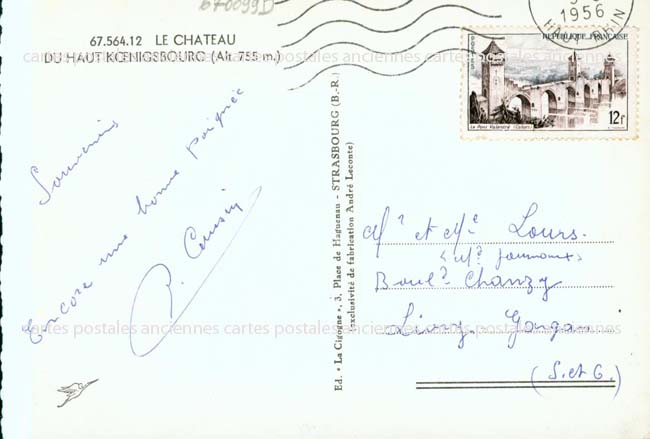 670099D
67.564.12 LE CHATEAU
DU HAUT KŒNIGSBOURG (Alt. 755 m.)
Souvenirs
Encore une bonne poignée
P. Cousin
Ed. « La Cigogne », 3, Place de Haguenau - STRASBOURG (B.-R.)
(exclusivité de fabrication André Leconte)
1956
HAUT RHIN
REPUBLIQUE FRANÇAISE
POSTES
Le Pont Valentré (Cahors)
12f
Mr et Me Lours.
(Me Journaux)
Bould Chanzy
Livry-Gargan
(S. et O.)
cartes postales anciennes cartes postales anciennes cartes postales anciennes
cartes postales anciennes cartes postales anciennes cartes postales anciennes